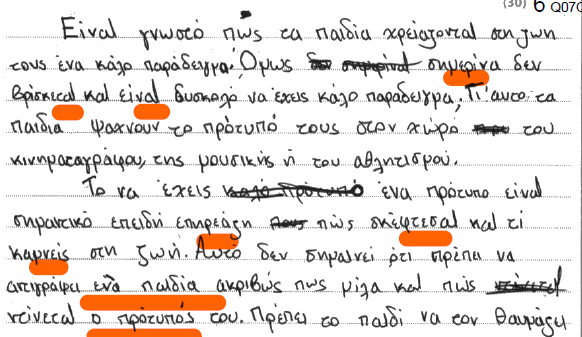 (30) 6 Q07C
Είναι γνωστό πώς τα παιδία χρειάζονται στη ζωη
τους ένα κάλο παράδειγμα. Όμως σημερίνα δεν
βρίσκεται και είναι δυσκολό να έχεις κάλο παραδειγμα. Γι'αυτο τα
παιδία ψαχνουν το πρότυπό τους στον χώρο του
κινηματογράφου, της μουσικής ή του αθλητισμού.
Το να έχεις ένα πρότυπο είναι
σημαντικό επειδή επηρεάζη πώς σκέφτεσαι και τί
καρνείς στη ζωή. Αυτό δεν σημαίνει ότι πρέπει να
αντιγράφει ένα παιδία ακριβώς πως μίλα και πώς
ντίνεται ο πρότυπός του. Πρέπει το παιδί να τον θαυμάζει